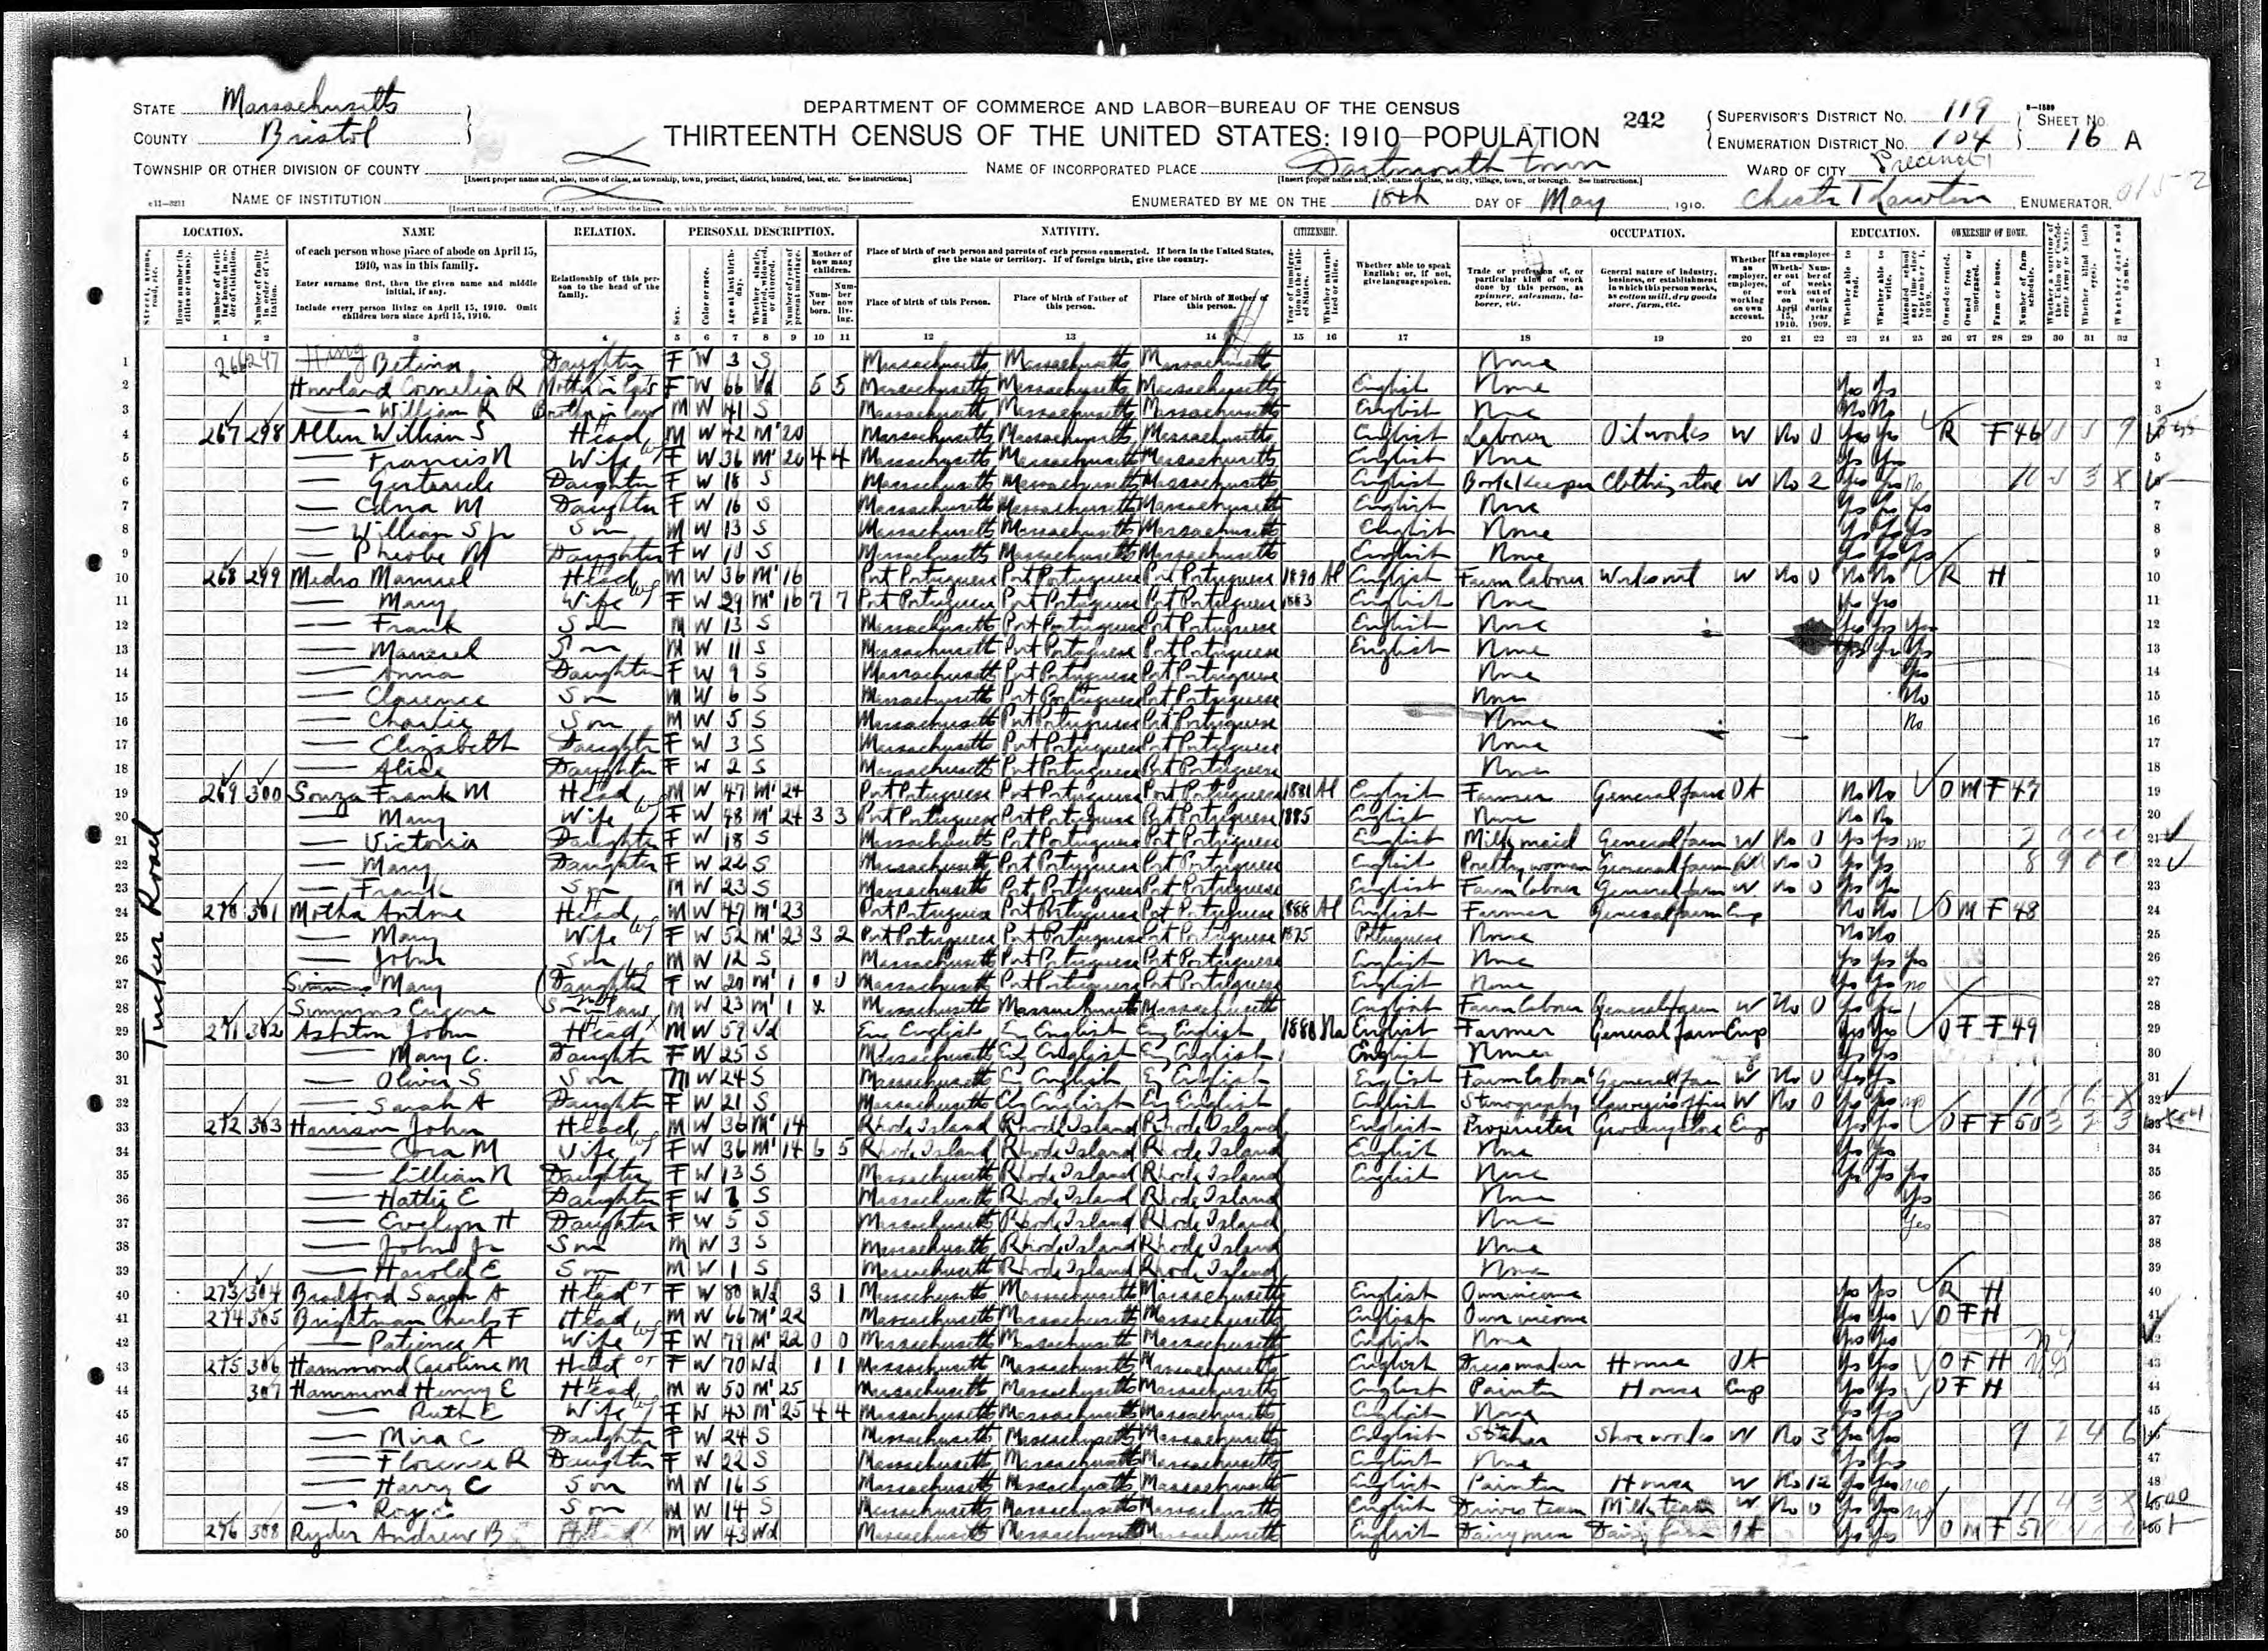 STATE Massachusetts
COUNTY Bristol
DEPARTMENT OF COMMERCE AND LABOR—BUREAU OF THE CENSUS
THIRTEENTH CENSUS OF THE UNITED STATES: 1910—POPULATION
242
SUPERVISOR'S DISTRICT NO. 119
ENUMERATION DISTRICT NO. 104
8-1589
SHEET NO. 16 A
TOWNSHIP OR OTHER DIVISION OF COUNTY
[Insert proper name and, also, name of class, as township, town, precinct, district, hundred, beat, etc. See instructions.]
NAME OF INCORPORATED PLACE Dartmouth town
[Insert proper name and, also, name of class, as city, village, town, or borough. See instructions.]
WARD OF CITY Precinct 1
NAME OF INSTITUTION
[Insert name of institution, if any, and indicate the lines on which the entries are made. See instructions.]
ENUMERATED BY ME ON THE 18th DAY OF May, 1910. Chester T Lawton, ENUMERATOR.
LOCATION. NAME RELATION. PERSONAL DESCRIPTION. NATIVITY. CITIZENSHIP. OCCUPATION. EDUCATION. OWNERSHIP OF HOME.
of each person whose place of abode on April 15, 1910, was in this family.
Enter surname first, then the given name and middle initial, if any.
Include every person living on April 15, 1910. Omit children born since April 15, 1910.
Relationship of this person to the head of the family.
Place of birth of each person and parents of each person enumerated. If born in the United States, give the state or territory. If of foreign birth, give the country.
Place of birth of this Person. Place of birth of Father of this person. Place of birth of Mother of this person.
Whether able to speak English; or, if not, give language spoken.
Trade or profession of, or particular kind of work done by this person, as spinner, salesman, laborer, etc.
General nature of industry, business, or establishment in which this person works, as cotton mill, dry goods store, farm, etc.
1 2 3 4 5 6 7 8 9 10 11 12 13 14 15 16 17 18 19 20 21 22 23 24 25 26 27 28 29 30 31 32
Tucker Road
1 266 297 King Betina Daughter F W 3 S Massachusetts Massachusetts Massachusetts None
2 Howland Cornelia R Mother in law F W 66 Wd 5 5 Massachusetts Massachusetts Massachusetts English None Yes Yes
3 — William R Brother in law M W 41 S Massachusetts Massachusetts Massachusetts English None No No
4 267 298 Allen William S Head M W 42 M1 20 Massachusetts Massachusetts Massachusetts English Laborer Oil works W No 0 Yes Yes R F 46
5 — Francis N Wife F W 36 M1 20 4 4 Massachusetts Massachusetts Massachusetts English None Yes Yes
6 — Gertrude Daughter F W 18 S Massachusetts Massachusetts Massachusetts English Bookkeeper Clothing store W No 2 Yes Yes No
7 — Edna M Daughter F W 16 S Massachusetts Massachusetts Massachusetts English None Yes Yes Yes
8 — William S Jr Son M W 13 S Massachusetts Massachusetts Massachusetts English None Yes Yes Yes
9 — Pheobe M Daughter F W 10 S Massachusetts Massachusetts Massachusetts English None Yes Yes Yes
10 268 299 Medro Manuel Head M W 36 M1 16 Port Portuguese Port Portuguese Port Portuguese 1890 Al English Farm laborer Works out W No 0 No No R H
11 — Mary Wife F W 29 M1 16 7 7 Port Portuguese Port Portuguese Port Portuguese 1883 English None Yes Yes
12 — Frank Son M W 13 S Massachusetts Port Portuguese Port Portuguese English None Yes Yes Yes
13 — Manuel Son M W 11 S Massachusetts Port Portuguese Port Portuguese English None Yes Yes Yes
14 — Anna Daughter F W 9 S Massachusetts Port Portuguese Port Portuguese None Yes
15 — Clarence Son M W 6 S Massachusetts Port Portuguese Port Portuguese None No
16 — Charlie Son M W 5 S Massachusetts Port Portuguese Port Portuguese None No
17 — Elizabeth Daughter F W 3 S Massachusetts Port Portuguese Port Portuguese None
18 — Alice Daughter F W 2 S Massachusetts Port Portuguese Port Portuguese None
19 269 300 Souza Frank M Head M W 47 M1 24 Port Portuguese Port Portuguese Port Portuguese 1881 Al English Farmer General farm OA No No O M F 47
20 — Mary Wife F W 48 M1 24 3 3 Port Portuguese Port Portuguese Port Portuguese 1885 English None No No
21 — Victoria Daughter F W 18 S Massachusetts Port Portuguese Port Portuguese English Milk maid General farm W No 0 Yes Yes No
22 — Mary Daughter F W 22 S Massachusetts Port Portuguese Port Portuguese English Poultry woman General farm W No 0 Yes Yes
23 — Frank Son M W 23 S Massachusetts Port Portuguese Port Portuguese English Farm laborer General farm W No 0 Yes Yes
24 270 301 Motha Antone Head M W 47 M1 23 Port Portuguese Port Portuguese Port Portuguese 1888 Al English Farmer General farm Emp No No O M F 48
25 — Mary Wife F W 52 M1 23 3 2 Port Portuguese Port Portuguese Port Portuguese 1875 Portuguese None No No
26 — John Son M W 12 S Massachusetts Port Portuguese Port Portuguese English None Yes Yes Yes
27 Simmons Mary Daughter F W 20 M1 1 0 0 Massachusetts Port Portuguese Port Portuguese English None Yes Yes No
28 Simmons Eugene Son in law M W 23 M1 1 Massachusetts Massachusetts Massachusetts English Farm laborer General farm W No 0 Yes Yes
29 271 302 Ashton John Head M W 59 Wd Eng English Eng English Eng English 1880 Na English Farmer General farm Emp Yes Yes O F F 49
30 — Mary C. Daughter F W 25 S Massachusetts Eng English Eng English English None Yes Yes
31 — Oliver S Son M W 24 S Massachusetts Eng English Eng English English Farm laborer General farm W No 0 Yes Yes
32 — Sarah A Daughter F W 21 S Massachusetts Eng English Eng English English Stenography Lawyers office W No 0 Yes Yes No
33 272 303 Harrison John Head M W 36 M1 14 Rhode Island Rhode Island Rhode Island English Proprietor Grocery store Emp Yes Yes O F F 50
34 — Cora M Wife F W 36 M1 14 6 5 Rhode Island Rhode Island Rhode Island English None Yes Yes
35 — Lillian N Daughter F W 13 S Massachusetts Rhode Island Rhode Island English None Yes Yes Yes
36 — Hattie E Daughter F W 7 S Massachusetts Rhode Island Rhode Island None Yes
37 — Evelyn H Daughter F W 5 S Massachusetts Rhode Island Rhode Island None Yes
38 — John Jr Son M W 3 S Massachusetts Rhode Island Rhode Island None
39 — Harold E Son M W 1 S Massachusetts Rhode Island Rhode Island None
40 273 304 Bradford Sarah A Head F W 80 Wd 3 1 Massachusetts Massachusetts Massachusetts English Own income Yes Yes R H
41 274 305 Brightman Charles F Head M W 66 M1 22 Massachusetts Massachusetts Massachusetts English Own income Yes Yes O F H
42 — Patience A Wife F W 79 M1 22 0 0 Massachusetts Massachusetts Massachusetts English None Yes Yes
43 275 306 Hammond Caroline M Head F W 70 Wd 1 1 Massachusetts Massachusetts Massachusetts English Dressmaker Home OA Yes Yes O F H
44 307 Hammond Henry E Head M W 50 M1 25 Massachusetts Massachusetts Massachusetts English Painter House Emp Yes Yes O F H
45 — Ruth E Wife F W 43 M1 25 4 4 Massachusetts Massachusetts Massachusetts English None Yes Yes
46 — Mira C Daughter F W 24 S Massachusetts Massachusetts Massachusetts English Sticher Shoe works W No 3 Yes Yes
47 — Florence R Daughter F W 22 S Massachusetts Massachusetts Massachusetts English None Yes Yes
48 — Harry C Son M W 16 S Massachusetts Massachusetts Massachusetts English Painter House W No 12 Yes Yes No
49 — Roy Son M W 14 S Massachusetts Massachusetts Massachusetts English Drives team Milk team W No 0 Yes Yes No
50 276 308 Ryder Andrew B Head M W 43 Wd Massachusetts Massachusetts Massachusetts English Dairyman Dairy farm OA Yes Yes O M F 51